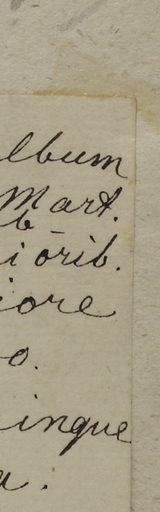 lbum
Mart.
b
iorib.
iore
o.
inque
a.